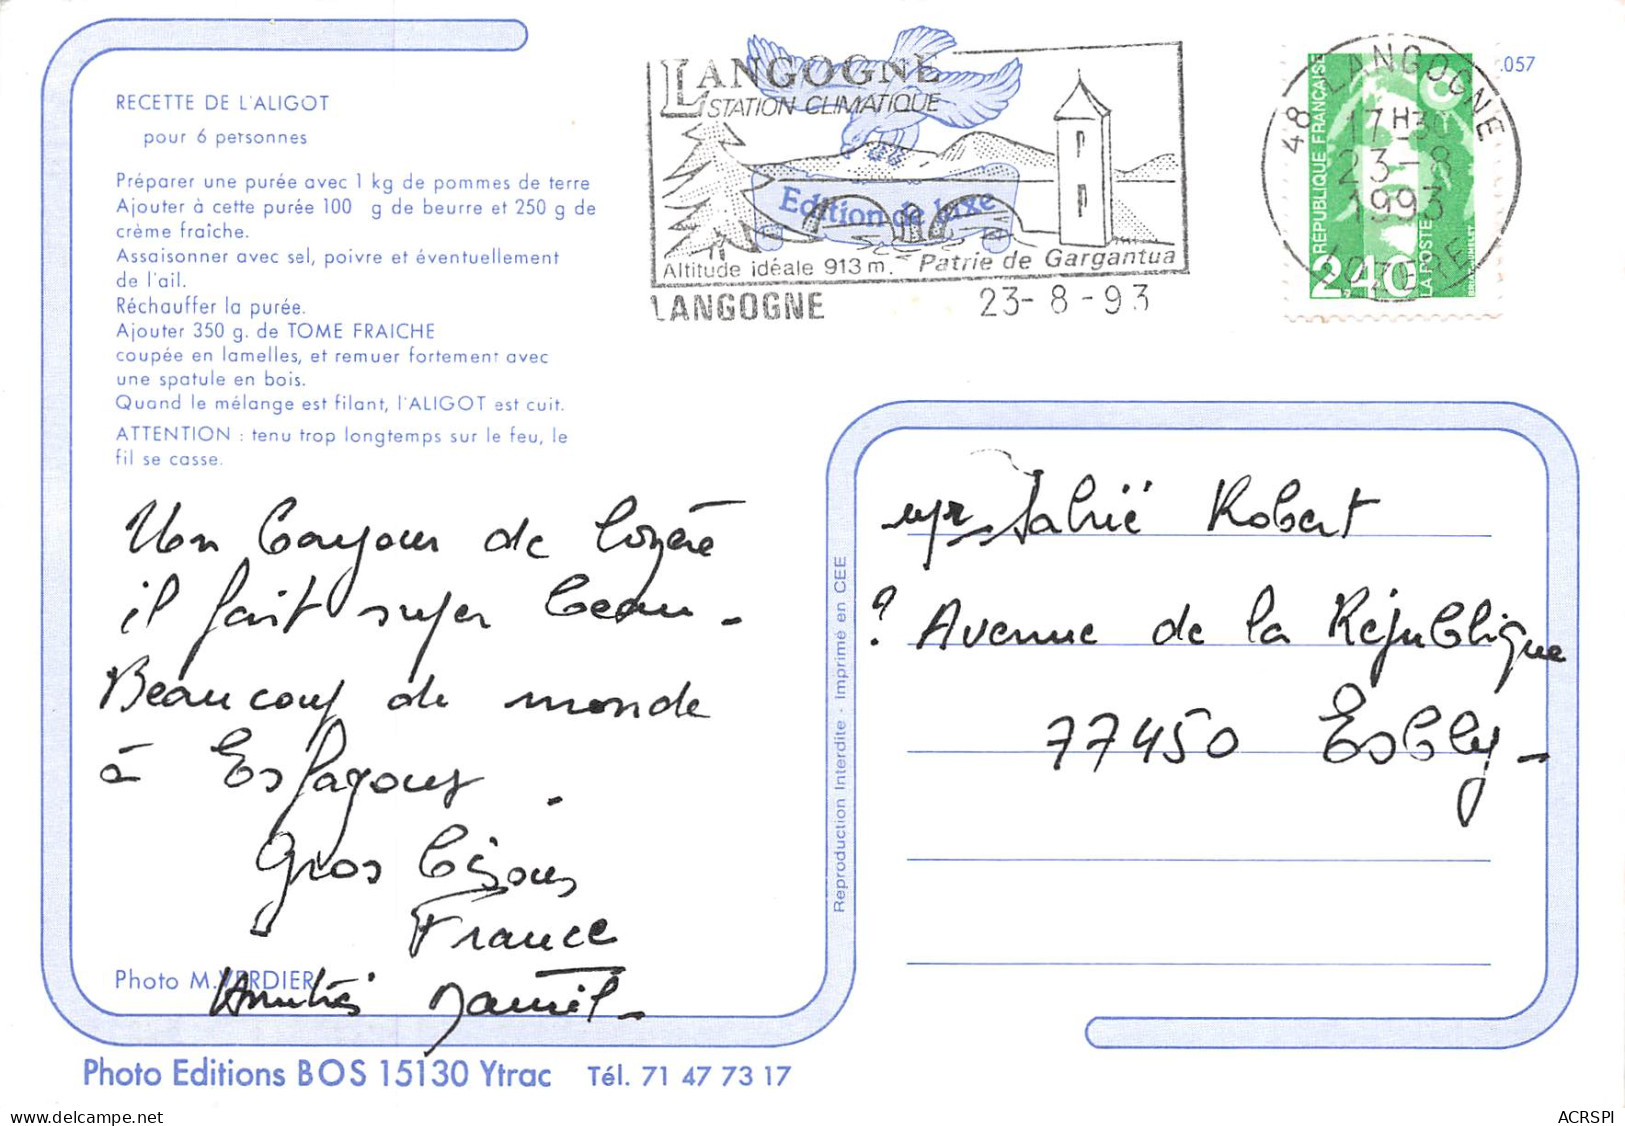 RECETTE DE L'ALIGOT
pour 6 personnes
Préparer une purée avec 1 kg de pommes de terre
Ajouter à cette purée 100 g de beurre et 250 g de
crème fraîche.
Assaisonner avec sel, poivre et éventuellement
de l'ail.
Réchauffer la purée.
Ajouter 350 g. de TOME FRAICHE
coupée en lamelles, et remuer fortement avec
une spatule en bois.
Quand le mélange est filant, l'ALIGOT est cuit.
ATTENTION : tenu trop longtemps sur le feu, le
fil se casse.
Un bonjour de Lozère
il fait super beau -
Beaucoup de monde
à
Gros bisous
France
Daniel -
Photo M. VERDIER
Photo Editions BOS 15130 Ytrac Tél. 71 47 73 17
Reproduction Interdite - Imprimé en CEE
LANGOGNE
STATION CLIMATIQUE
Edition de luxe
Altitude idéale 913 m. Patrie de Gargantua
LANGOGNE 23-8-93
48 LANGOGNE
17H30
23-8
1993
LOZERE
REPUBLIQUE FRANÇAISE
2,40
LA POSTE
.057
Robert
? Avenue de la République
77450 Esbly -
ACRSPI